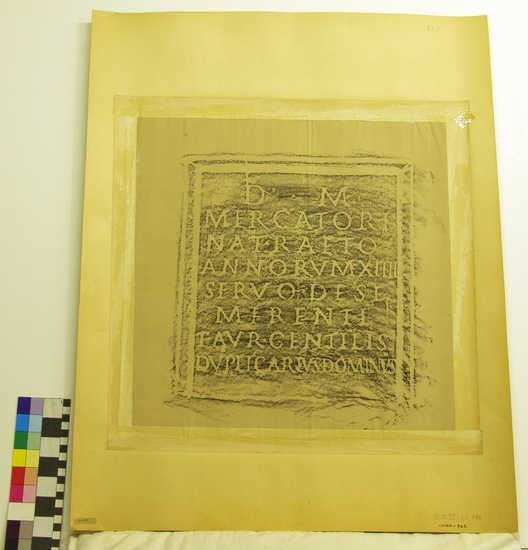 D · M
MERCATORI
NAT RAETO
ANNORVM XIIII
SERVO DE SE
MERENTI
F AVR GENTILIS
DVPLICARIVS DOMINVS